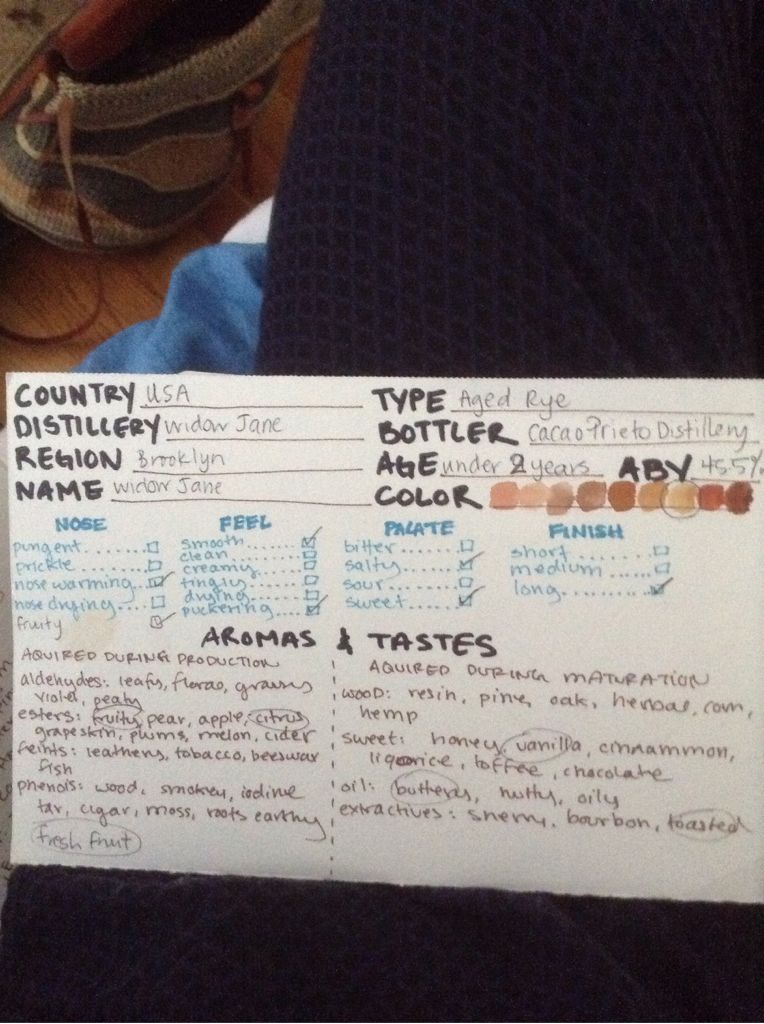 COUNTRY USA
DISTILLERY Widow Jane
REGION Brooklyn
NAME Widow Jane
TYPE Aged Rye
BOTTLER Cacao Prieto Distillery
AGE under 2 years ABV 45.5%
COLOR
NOSE
pungent.......
prickle.......
nose warming...
nose drying....
fruity
FEEL
smooth.......
clean........
creamy.......
tingly.......
drying.......
puckering....
PALATE
bitter.......
salty........
sour.........
sweet........
FINISH
short.......
medium......
long........
AROMAS & TASTES
AQUIRED DURING PRODUCTION
aldehydes: leafy, florao, grassy
violet, peaty
esters: fruity, pear, apple, citrus
grapeskin, plums, melon, cider
feints: leathery, tobacco, beeswax
fish
phenois: wood, smokey, iodine
tar, cigar, moss, roots earthy
fresh fruit
AQUIRED DURING MATURATION
wood: resin, pine, oak, herbal, corn,
hemp
sweet: honey, vanilla, cinnammon,
liquorice, toffee, chocolate
oil: buttery, nutty, oily
extractives: sherry, bourbon, toasted